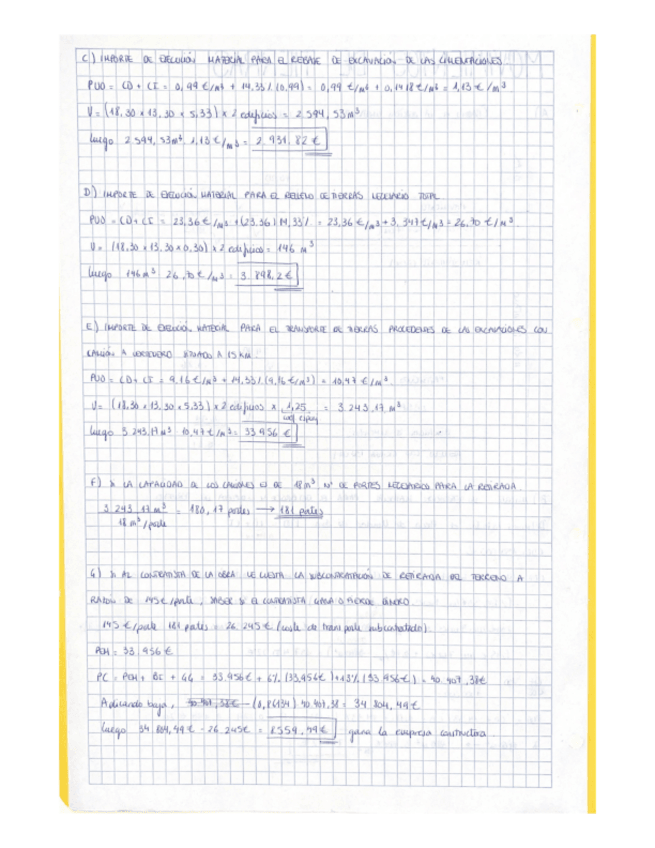 C) IMPORTE DE EJECUCIÓN MATERIAL PARA EL REBAJE DE EXCAVACIÓN DE LAS CIMENTACIONES
PUO = CD + CI = 0,99 €/m³ + 14,33% (0,99) = 0,99 €/m³ + 0,1418 €/m³ = 1,13 €/m³
V = (18,30 x 13,30 x 5,33) x 2 edificios = 2.594,53 m³
luego 2 594,53m³ 1,13 €/m³ = 2.931,82 €
D) IMPORTE DE EJECUCIÓN MATERIAL PARA EL RELLENO DE TIERRAS NECESARIO TOTAL
PUO = CD + CI = 23,36 €/m³ + (23,36) 14,33% = 23,36 €/m³ + 3,347 €/m³ = 26,70 €/m³
V = (18,30 x 13,30 x 0,30) x 2 edificios = 146 m³
luego 146 m³ 26,70 €/m³ = 3.898,2 €
E) IMPORTE DE EJECUCIÓN MATERIAL PARA EL TRANSPORTE DE TIERRAS PROCEDENTES DE LAS EXCAVACIONES CON
CAMIÓN A VERTEDERO SITUADO A 15 KM
PUO = CD + CI = 9,16 €/m³ + 14,33% (9,16 €/m³) = 10,47 €/m³
V = (18,30 x 13,30 x 5,33) x 2 edificios x 1,25 = 3.243,17 m³
luego 3 243,17m³ 10,47 €/m³ = 33 956 €
F) SI LA CAPACIDAD DE LOS CAMIONES ES DE 18 m³ Nº DE PORTES NECESARIOS PARA LA RETIRADA
3 243,17 m³ = 180,17 portes → 181 portes
18 m³/porte
G) SI AL CONTRATISTA DE LA OBRA LE CUESTA LA SUBCONTRATACIÓN DE RETIRADA DEL TERRENO A
RAZÓN DE 145 €/porte, SABER SI EL CONTRATISTA GANA O PIERDE DINERO
145 €/porte 181 portes = 26 245 € (coste de transporte subcontratado)
PEM = 33.956 €
PC = PEM + BI + GG = 33.956 € + 6% (33.956 €) + 13% (33 956 €) = 40 407,38 €
Aplicando baja, (0,86134) 40 407,38 = 34 804,49 €
luego 34 804,49 € - 26 245 € = 8559,49 € gana la empresa constructora